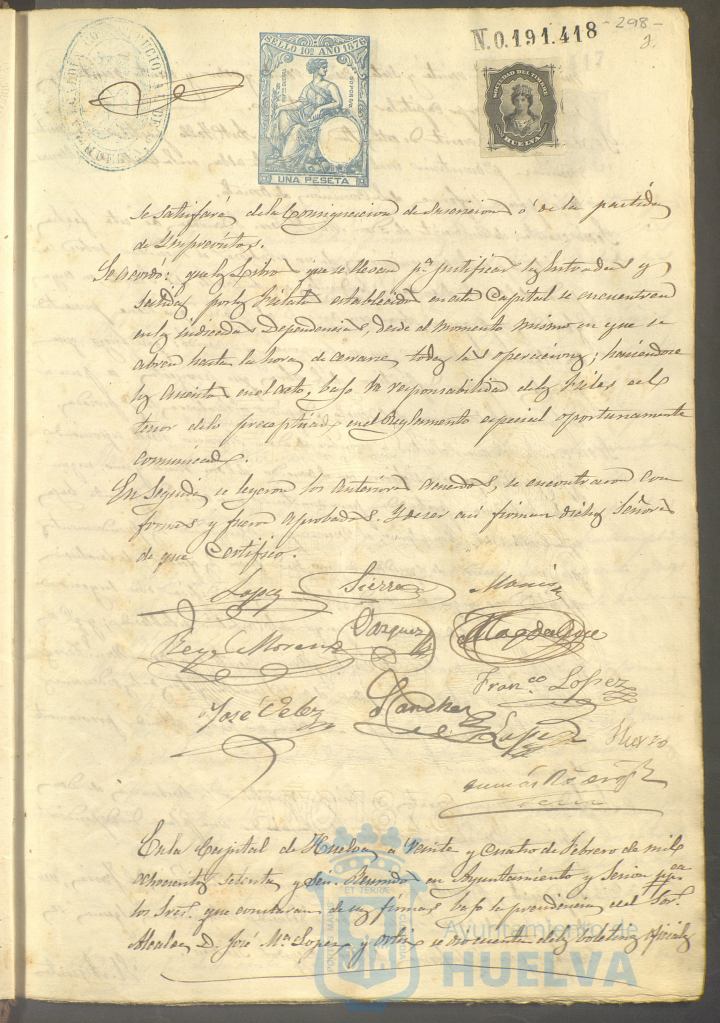 -298-
SELLO 10º AÑO 1876
UNA PESETA
N.0.191.418
SOCIEDAD DEL TIMBRE
HUELVA
se satisfará de la Consignacion de ó de la partida
de Imprevistos.
Se acordó: que los Libros que se llevan pª justificar las Entradas y
salidas por los Fielatos establecidos en esta Capital se encuentren
en las indicadas Dependencias desde el momento mismo en que se
abren hasta la hora de cerrarse todas las operaciones; haciendose
los asientos en el acto, bajo la responsabilidad de los Fieles al
tenor de lo preceptuado en el Reglamento especial oportunamente
comunicado.
En seguida se leyeron los anteriores acuerdos, se encontraron con
formes y fueron aprobados. Y de ser asi firman dichos Señores
de que Certifico.
Lopez Sierra
Rey Moreno Vazquez Magdalena
Franco Lopez
José Velez Sanchez
Lopez
En la Capital de Huelva a Veinte y Cuatro de Febrero de mil
ochocientos setenta y seis. Reunidos en Ayuntamiento y Sesion
los Sres. que constaran de sus firmas bajo la presidencia del Sor.
Alcalde D. José Mª Lopez y Ortiz se dio cuenta de los boletines oficiales
Ayuntamiento de
HUELVA